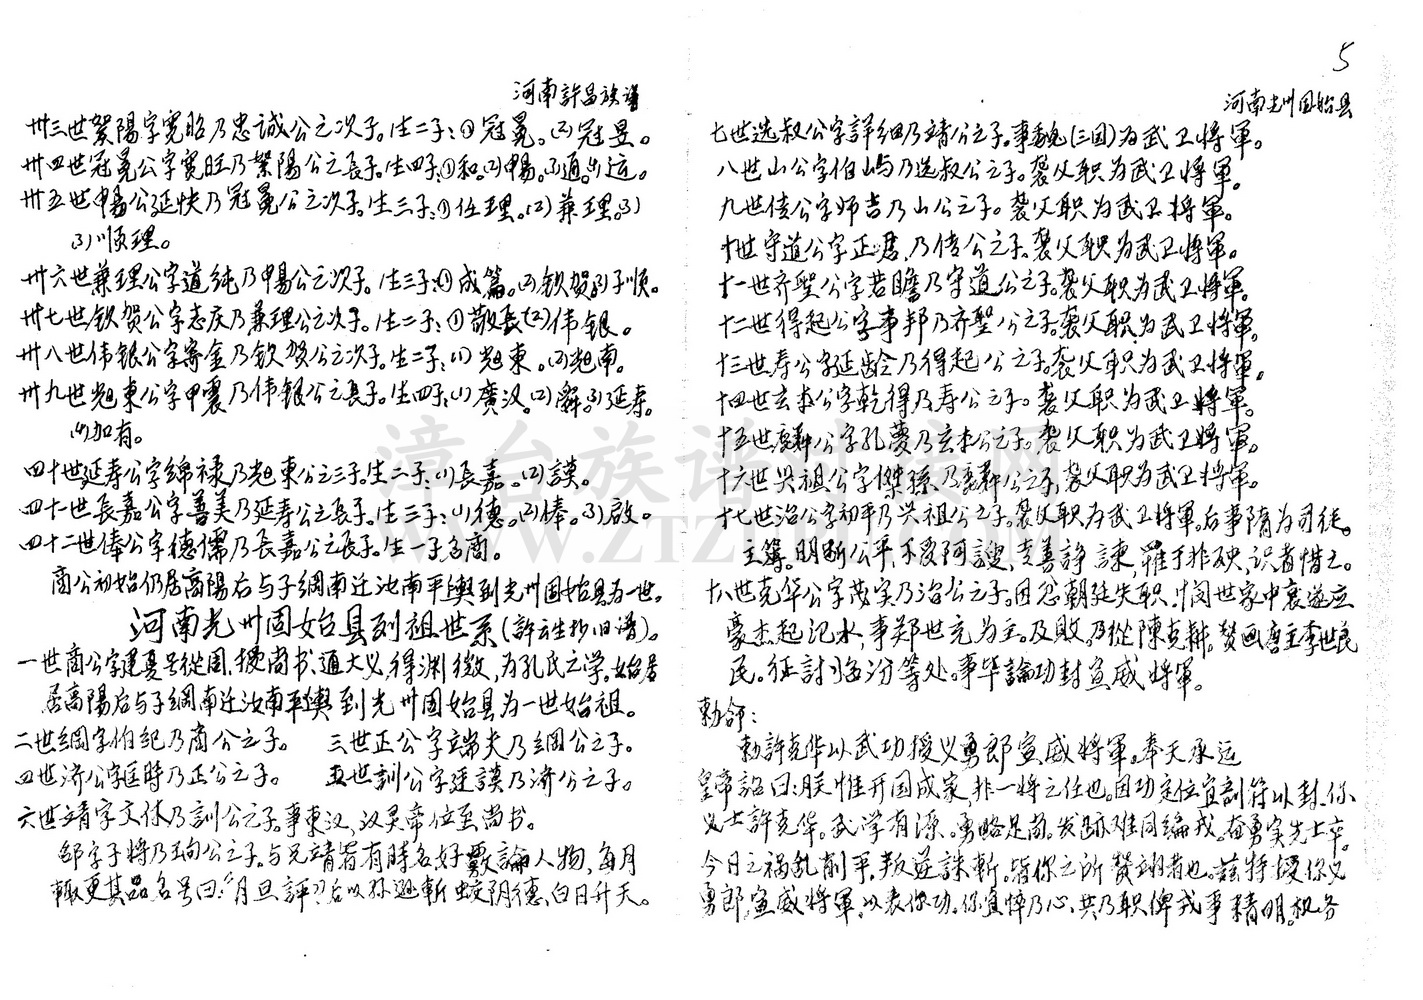 河南許昌族谱
卅三世繁陽字寬昭乃忠誠公之次子。生二子:(1)冠冕。(2)冠昱。
卅四世冠冕公字寬旺乃繁陽公之長子。生四子:(1)和。(2)暢。(3)通。(4)远。
卅五世暢公延快乃冠冕公之次子。生三子:(1)任理。(2)兼理。(3)
3)順理。
卅六世兼理公字道純乃暢公之次子。生三子:(1)成篇。(2)钦贺(3)子順。
卅七世钦贺公字志庆乃兼理公之次子。生二子:(1)敬長(2)伟银。
卅八世伟银公字寄金乃钦贺公之次子。生二子:(1)旭東。(2)旭南。
卅九世旭東公字甲震乃伟银公之長子。生四子:(1)廣汉。(2)解。(3)延寿。
(4)加有。
四十世延寿公字绵禄乃旭東公之三子。生二子:(1)長嘉。(2)謨。
四十一世長嘉公字善美乃延寿公之長子。生三子:(1)德。(2)俸。(3)啟。
四十二世俸公字德儒乃長嘉公之長子。生一子名商。
商公初始仍居高陽后与子綱南迁汝南平輿到光卅固始县为一世。
河南光卅固始县列祖世系(許云生抄旧谱)。
一世商公字建夏号從周,授尚书、通大义,得渊微,为孔氏之学。始居
居高陽后与子綱南迁汝南平輿到光卅固始县为一世始祖。
二世綱字伯纪乃商公之子。 三世正公字端夫乃綱公之子。
四世济公字匡時乃正公之子。 五世訓公字廷謨乃济公之子。
六世靖字文休乃訓公之子。事東汉,汉灵帝位至尚书。
邵字子将乃珦公之子。与兄靖皆有時名好覈論人物,每月
輙更其品名号曰:“月旦評”后以孙逊斬蛟阴德、白日升天。
5
河南光州固始县
七世选叔公字詳细乃靖公之子。事魏(三国)为武卫将軍。
八世山公字伯嶼乃选叔公之子。袭父职为武卫将軍。
九世倍公字师吉乃山公之子。袭父职为武卫将軍。
十世守道公字正居,乃倍公之子。袭父职为武卫将軍。
十一世齐聖公字若瞻乃守道公之子。袭父职为武卫将軍。
十二世得起公字事邦乃齐聖公之子。袭父职为武卫将軍。
十三世寿公字延齡乃得起公之子。袭父职为武卫将軍。
十四世玄本公字乾得乃寿公之子。袭父职为武卫将軍。
十五世麟公字孔夢乃玄本公之子。袭父职为武卫将軍。
十六世兴祖公字傑孫乃麟公之子,袭父职为武卫将軍。
十七世治公字初平乃兴祖公之子。袭父职为武卫将軍。后事隋为司徒。
主簿。明断公平,不受阿諛,支善諍諫,罹于非殃,识者惜之。
十八世克华公字茂实乃治公之子。因忿朝廷失职,悯世家中衰遂应
豪杰起汜水,事郑世充为主。及敗,乃從陳克耕。赞画唐主李世民
民。征討临汾等处。事毕論功封宣威将軍。
勅命:
勅許克华以武功授义勇郎宣威将軍。奉天承运
皇帝詔曰:朕惟开国成家,非一将之任也。因功定位宜剖符以封,你
义士許克华。武学有源。勇略足尚。发跡难同编戎。奋勇实先士卒。
今日之祸乱削平,叛逆誅斬。皆你之所赞翊者也。茲特授你义
勇郎,宣威将軍,以表你功。你宜悴乃心、共乃职俾戎事精明。机务
漳台族谱对接网
WWW.ZTZUPU.COM